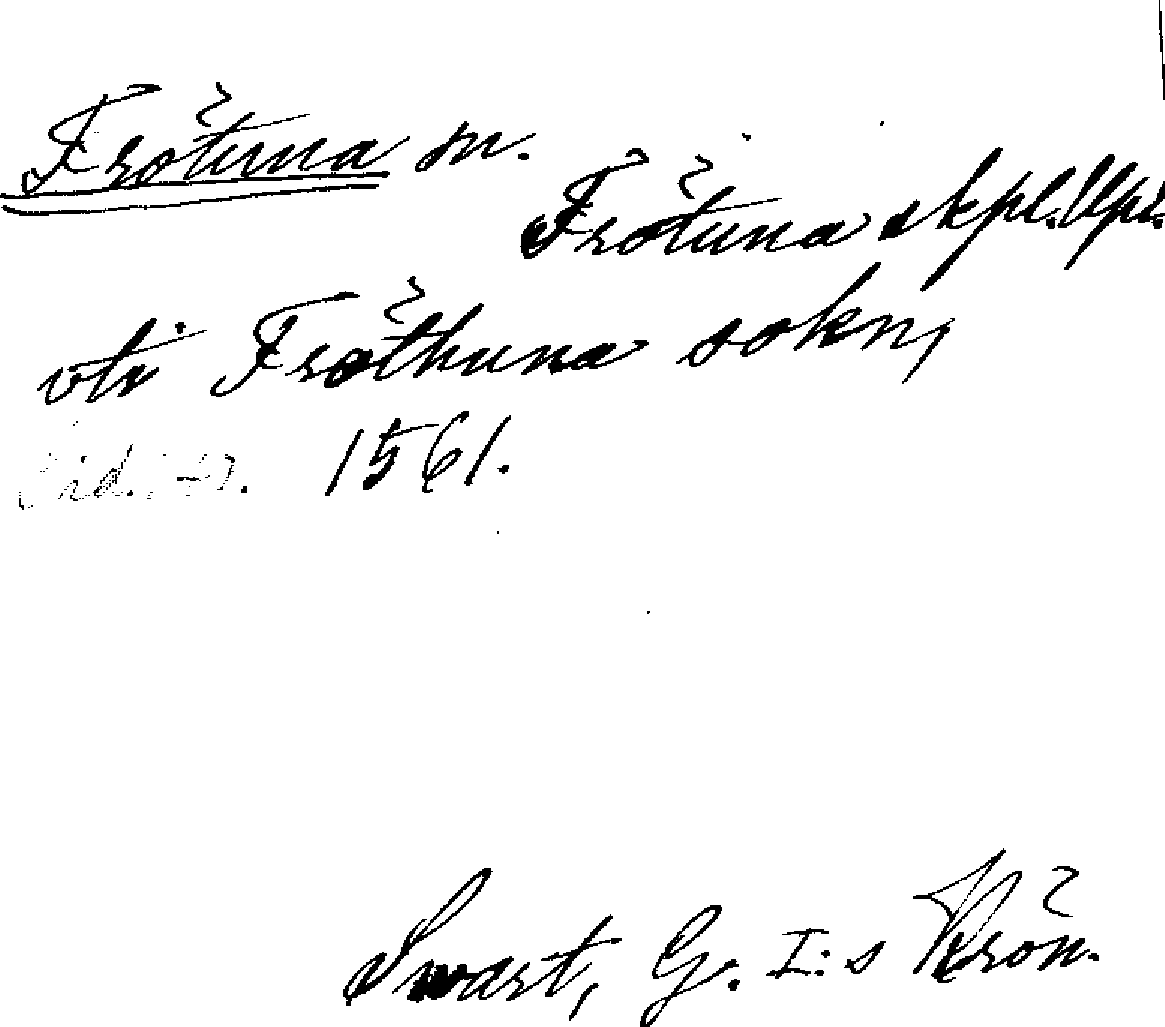 Frötuna sn.
Frötuna skpl. Upl.
vti Fröthuna sokn,
Sid. 1561.
Swart, G. I:s Krön.